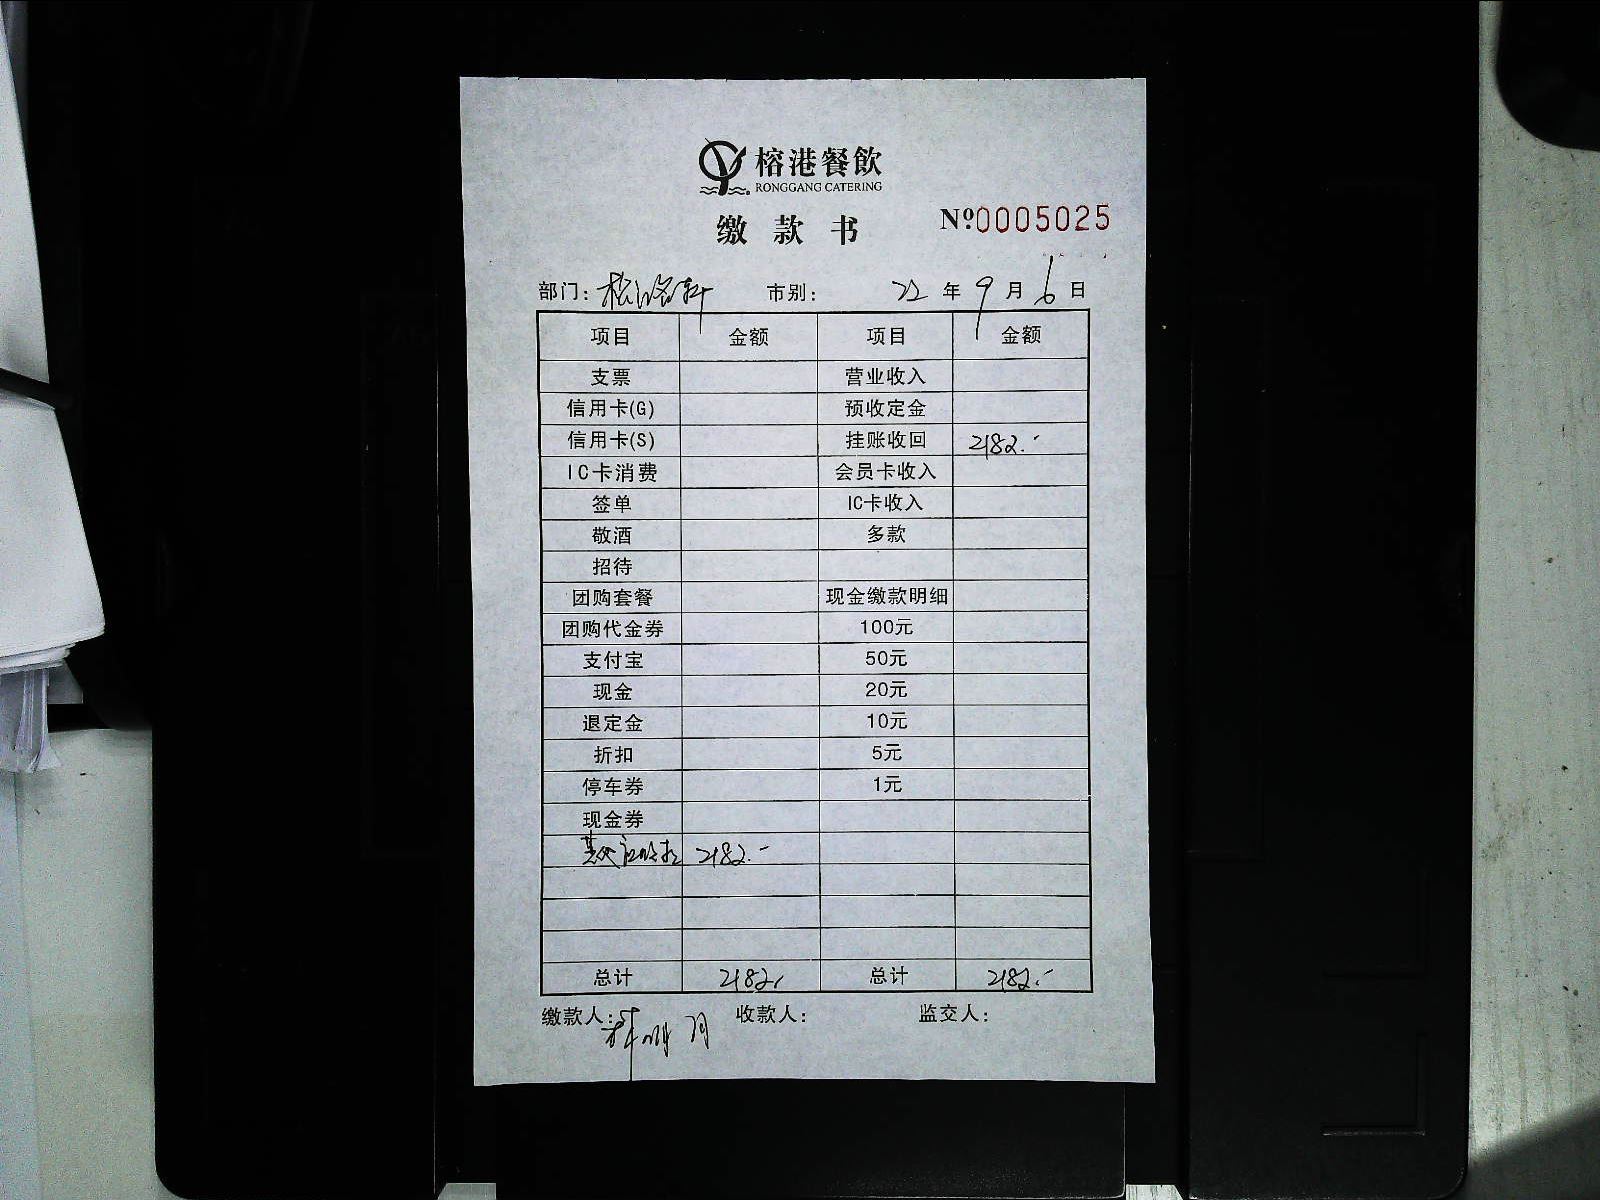 榕港餐飲
RONGGANG CATERING
缴款书 Nº:0005025
部门: 市别: 22 年 9 月 6 日
项目 金额 项目 金额
支票 营业收入
信用卡(G) 预收定金
信用卡(S) 挂账收回 2182.-
IC卡消费 会员卡收入
签单 IC卡收入
敬酒 多款
招待
团购套餐 现金缴款明细
团购代金券 100元
支付宝 50元
现金 20元
退定金 10元
折扣 5元
停车券 1元
现金券
2182.-
总计 2182. 总计 2182.-
缴款人: 收款人: 监交人: